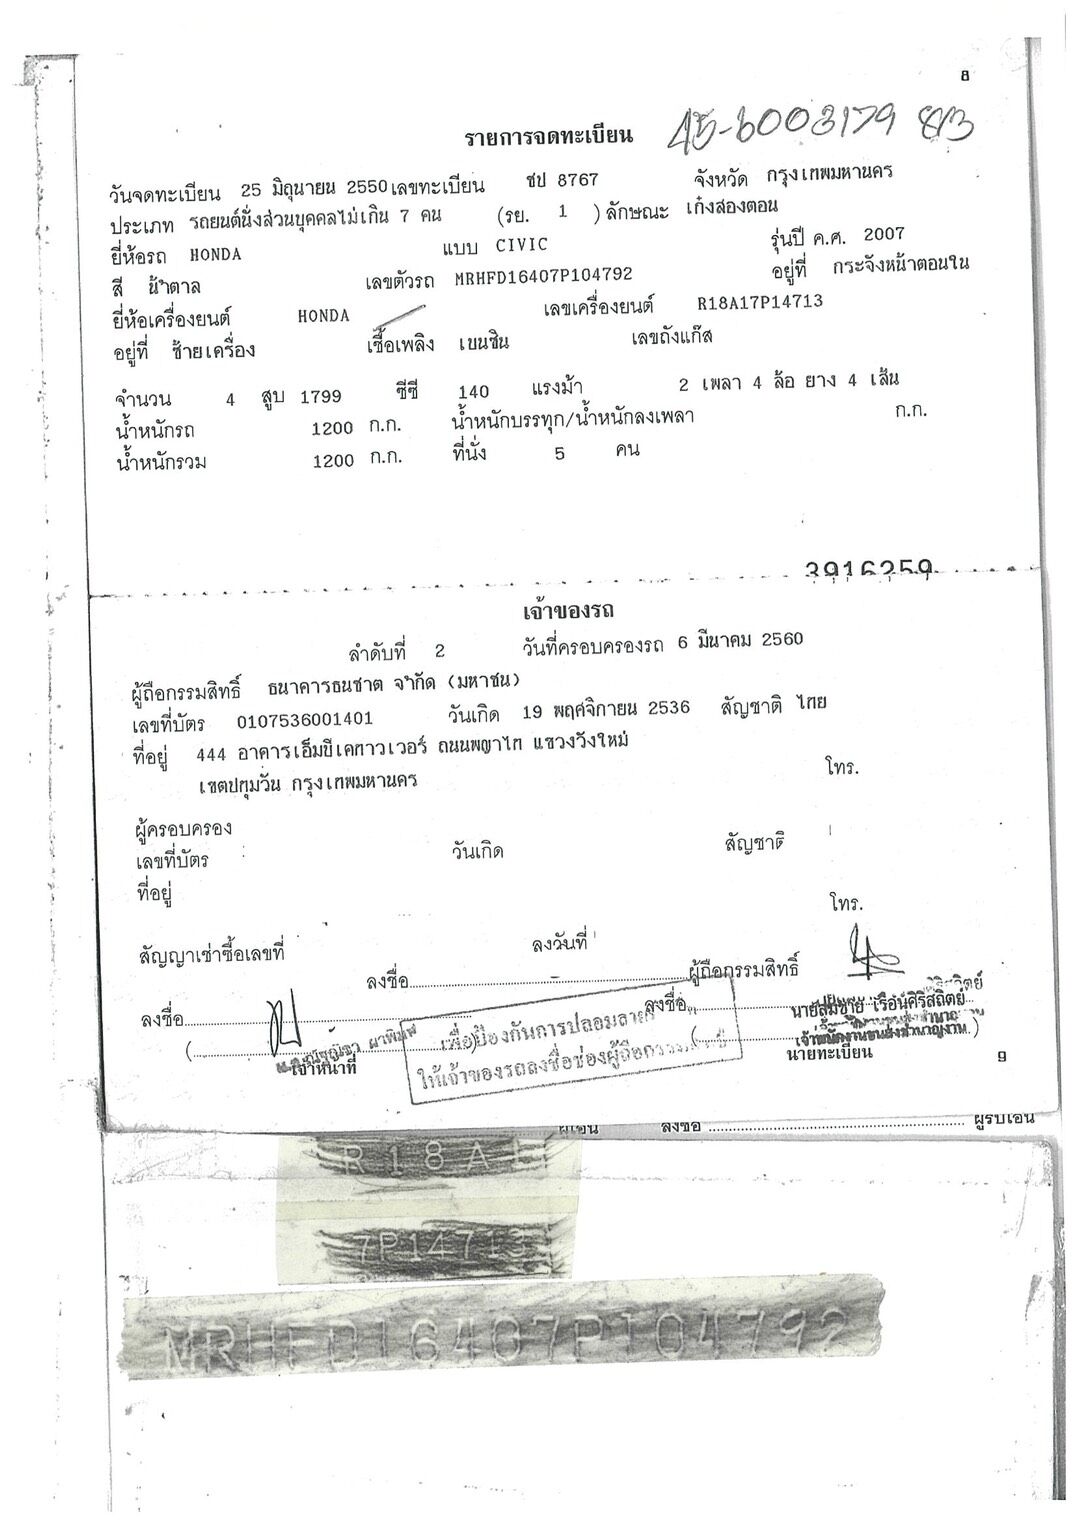 8
รายการจดทะเบียน
วันจดทะเบียน 25 มิถุนายน 2550 เลขทะเบียน ชป 8767 จังหวัด กรุงเทพมหานคร
ประเภท รถยนต์นั่งส่วนบุคคลไม่เกิน 7 คน (รย. 1 ) ลักษณะ เก๋งสองตอน
ยี่ห้อรถ HONDA แบบ CIVIC รุ่นปี ค.ศ. 2007
สี น้ำตาล เลขตัวรถ MRHFD16407P104792 อยู่ที่ กระจังหน้าตอนใน
ยี่ห้อเครื่องยนต์ HONDA เลขเครื่องยนต์ R18A17P14713
อยู่ที่ ซ้ายเครื่อง เชื้อเพลิง เบนซิน เลขถังแก๊ส
จำนวน 4 สูบ 1799 ซีซี 140 แรงม้า 2 เพลา 4 ล้อ ยาง 4 เส้น
น้ำหนักรถ 1200 ก.ก. น้ำหนักบรรทุก/น้ำหนักลงเพลา ก.ก.
น้ำหนักรวม 1200 ก.ก. ที่นั่ง 5 คน
3916259
เจ้าของรถ
ลำดับที่ 2 วันที่ครอบครองรถ 6 มีนาคม 2560
ผู้ถือกรรมสิทธิ์ ธนาคารธนชาต จำกัด (มหาชน)
เลขที่บัตร 0107536001401 วันเกิด 19 พฤศจิกายน 2536 สัญชาติ ไทย
ที่อยู่ 444 อาคารเอ็มบีเคทาวเวอร์ ถนนพญาไท แขวงวังใหม่
เขตปทุมวัน กรุงเทพมหานคร โทร.
ผู้ครอบครอง
เลขที่บัตร วันเกิด สัญชาติ
ที่อยู่
โทร.
สัญญาเช่าซื้อเลขที่ ลงวันที่
ลงชื่อ ผู้ถือกรรมสิทธิ์
ลงชื่อ ลงชื่อ นายสมชาย เรือนศิริสถิตย์
เพื่อป้องกันการปลอมลาย
เจ้าพนักงานขนส่งชำนาญงาน
ให้เจ้าของรถลงชื่อช่องผู้ถือกรรมสิทธิ์
เจ้าหน้าที่ นายทะเบียน
9
ผู้โอน ลงชื่อ ผู้รับโอน
R18A1
7P14713
MRHFD16407P104792